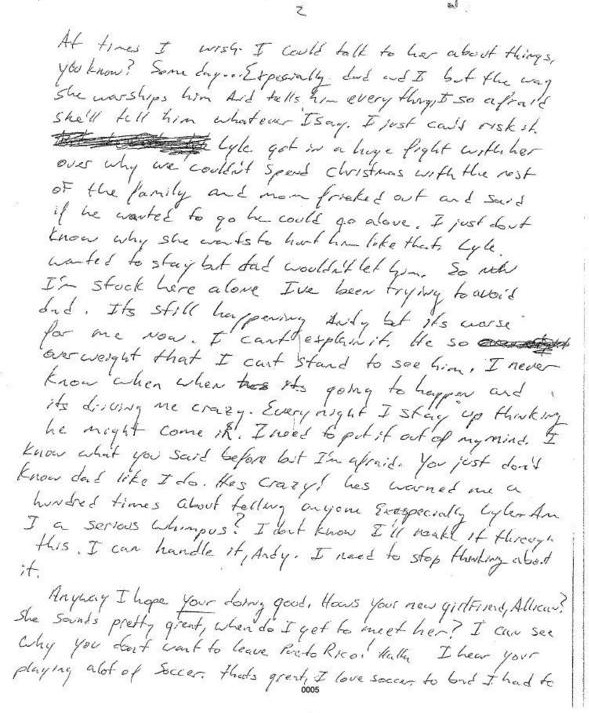 2
At times I wish I could talk to her about things,
you know? Some day... Expecially dad and I but the way
she worships him and tells him everything, I so afraid
she'll tell him whatever I say. I just can't risk it.
Lyle got in a huge fight with her
over why we couldn't spend christmas with the rest
of the family and mom frieked out and said
if he wanted to go he could go alone. I just dont
know why she wants to hurt him like that. Lyle
wanted to stay but dad wouldn't let him. So now
I'm stuck here alone I've been trying to avoid
dad. Its still happening Andy but its worse
for me now. I cant explain it. He so
overweight that I cant stand to see him. I never
know when when its going to happen and
its driving me crazy. Every night I stay up thinking
he might come in. I need to put it out of my mind. I
know what you said before but I'm afraid. You just don't
know dad like I do. Hes crazy! hes warned me a
hundred times about telling anyone Exspecially Lyle. Am
I a serious whimpus? I dont know I'll make it through
this. I can handle it, Andy. I need to stop thinking about
it.
Anyway I hope your doing good. Hows your new girlfriend, Allison?
She sounds pretty great, when do I get to meet her? I can see
why you don't want to leave Porto Rico! HaHa I hear your
playing alot of Soccer. thats great, I love soccer to but I had to
0005